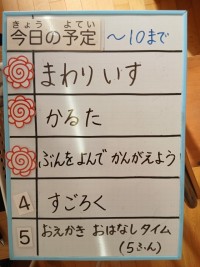 きょう よてい
今日の予定 ～10まで
まわりいす
かるた
ぶんをよんで かんがえよう
4 すごろく
5 おえかき おはなしタイム
(5ふん)